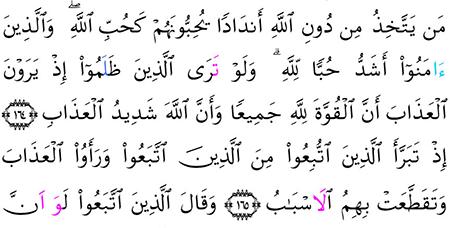 مَن يَتَّخِذُ مِن دُونِ ٱللَّهِ أَندَادًا يُحِبُّونَهُمْ كَحُبِّ ٱللَّهِ ۖ وَٱلَّذِينَ
ءَامَنُوٓاْ أَشَدُّ حُبًّا لِّلَّهِ ۗ وَلَوْ تَرَى ٱلَّذِينَ ظَلَمُوٓاْ إِذْ يَرَوْنَ
ٱلْعَذَابَ أَنَّ ٱلْقُوَّةَ لِلَّهِ جَمِيعًا وَأَنَّ ٱللَّهَ شَدِيدُ ٱلْعَذَابِ ١٦٤
إِذْ تَبَرَّأَ ٱلَّذِينَ ٱتُّبِعُواْ مِنَ ٱلَّذِينَ ٱتَّبَعُواْ وَرَأَوُاْ ٱلْعَذَابَ
وَتَقَطَّعَتْ بِهِمُ ٱلَاسْبَٰبُ ١٦٥ وَقَالَ ٱلَّذِينَ ٱتَّبَعُواْ لَوَ اَنَّ